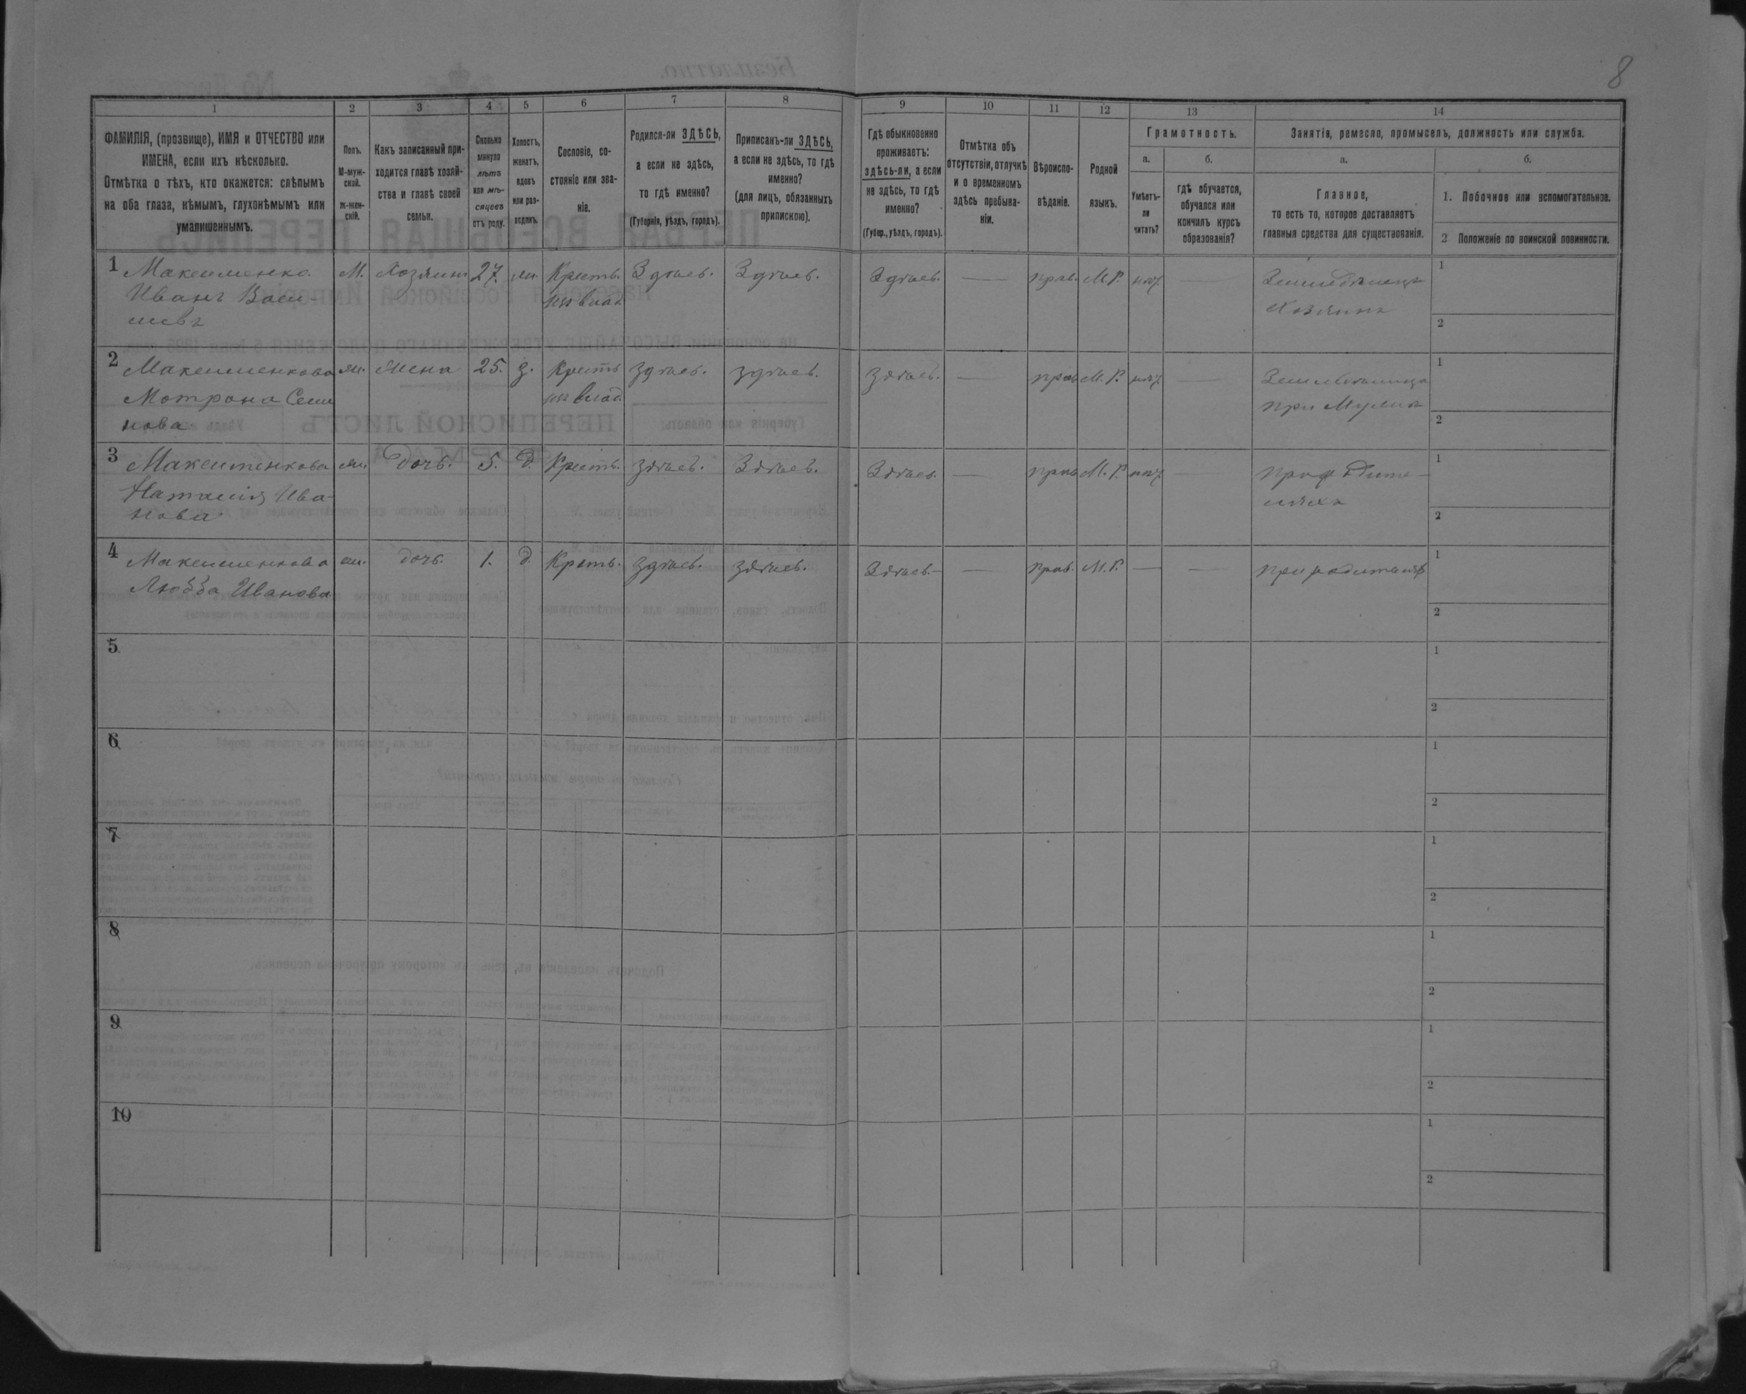 8
1 2 3 4 5 6 7 8 9 10 11 12 13 14
ФАМИЛІЯ, (прозвище), ИМЯ и ОТЧЕСТВО или
ИМЕНА, если ихъ нѣсколько.
Отмѣтка о тѣхъ, кто окажется: слѣпымъ
на оба глаза, нѣмымъ, глухонѣмымъ или
умалишеннымъ.
Полъ.
М-муж-
ской.
Ж-жен-
скій.
Какъ записанный при-
ходится главѣ хозяй-
ства и главѣ своей
семьи.
Сколько
минуло
лѣтъ
или мѣ-
сяцевъ
отъ роду.
Холостъ,
женатъ,
вдовъ
или раз-
веденъ.
Сословіе, со-
стояніе или зва-
ніе.
Родился-ли ЗДѢСЬ,
а если не здѣсь,
то гдѣ именно?
(Губернія, уѣздъ, городъ).
Приписанъ-ли ЗДѢСЬ,
а если не здѣсь, то гдѣ
именно?
(для лицъ, обязанныхъ
припискою).
Гдѣ обыкновенно
проживаетъ:
здѣсь-ли, а если
не здѣсь, то гдѣ
именно?
(Губер., уѣздъ, городъ).
Отмѣтка объ
отсутствіи, отлучкѣ
и о временномъ
здѣсь пребыва-
ніи.
Вѣроиспо-
вѣданіе.
Родной
языкъ.
Грамотность.
а.
Умѣетъ-
ли
читать?
б.
гдѣ обучается,
обучался или
кончилъ курсъ
образованія?
Занятія, ремесло, промыселъ, должность или служба.
а.
Главное,
то есть то, которое доставляетъ
главныя средства для существованія.
б.
1. Побочное или вспомогательное.
2 Положеніе по воинской повинности.
1 Максименко М. Хозяин 27. Крест. Здѣсь. Здѣсь. Здѣсь. — прав. М.Р. — 1
Иванъ Васи-
льевъ Хозяинъ 2
2 Максименкова жена 25. з. Крест здѣсь. здѣсь. Здѣсь. — прав М.Р. — 1
Мотрона Семе
нова 2
3 Максименкова дочь. 5. д. Крест. здѣсь. Здѣсь. Здѣсь. прав М.Р. — 1
Наталія Ива-
нова 2
4 Максименкова дочь. 1. д. Крест. здѣсь. здѣсь. Здѣсь. — прав. М.Р. — — 1
Любовь Иванова 2
5 1
2
6 1
2
7 1
2
8 1
2
9 1
2
10 1
2